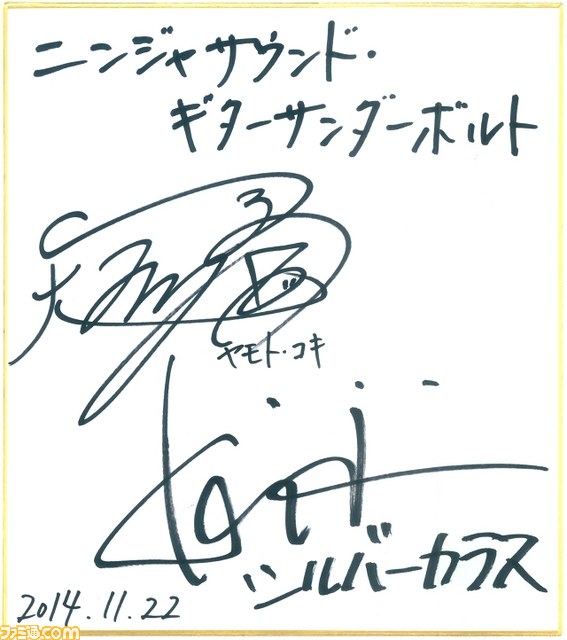 ニンジャサウンド・
ギターサンダーボルト
ヤモト・コキ
シルバーカラス
2014.11.22
ファミ通.com